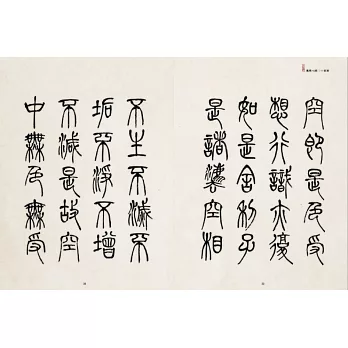 空即是色受
想行識亦復
如是舍利子
是諸法空相
不生不滅不
垢不淨不增
不減是故空
中無色無受